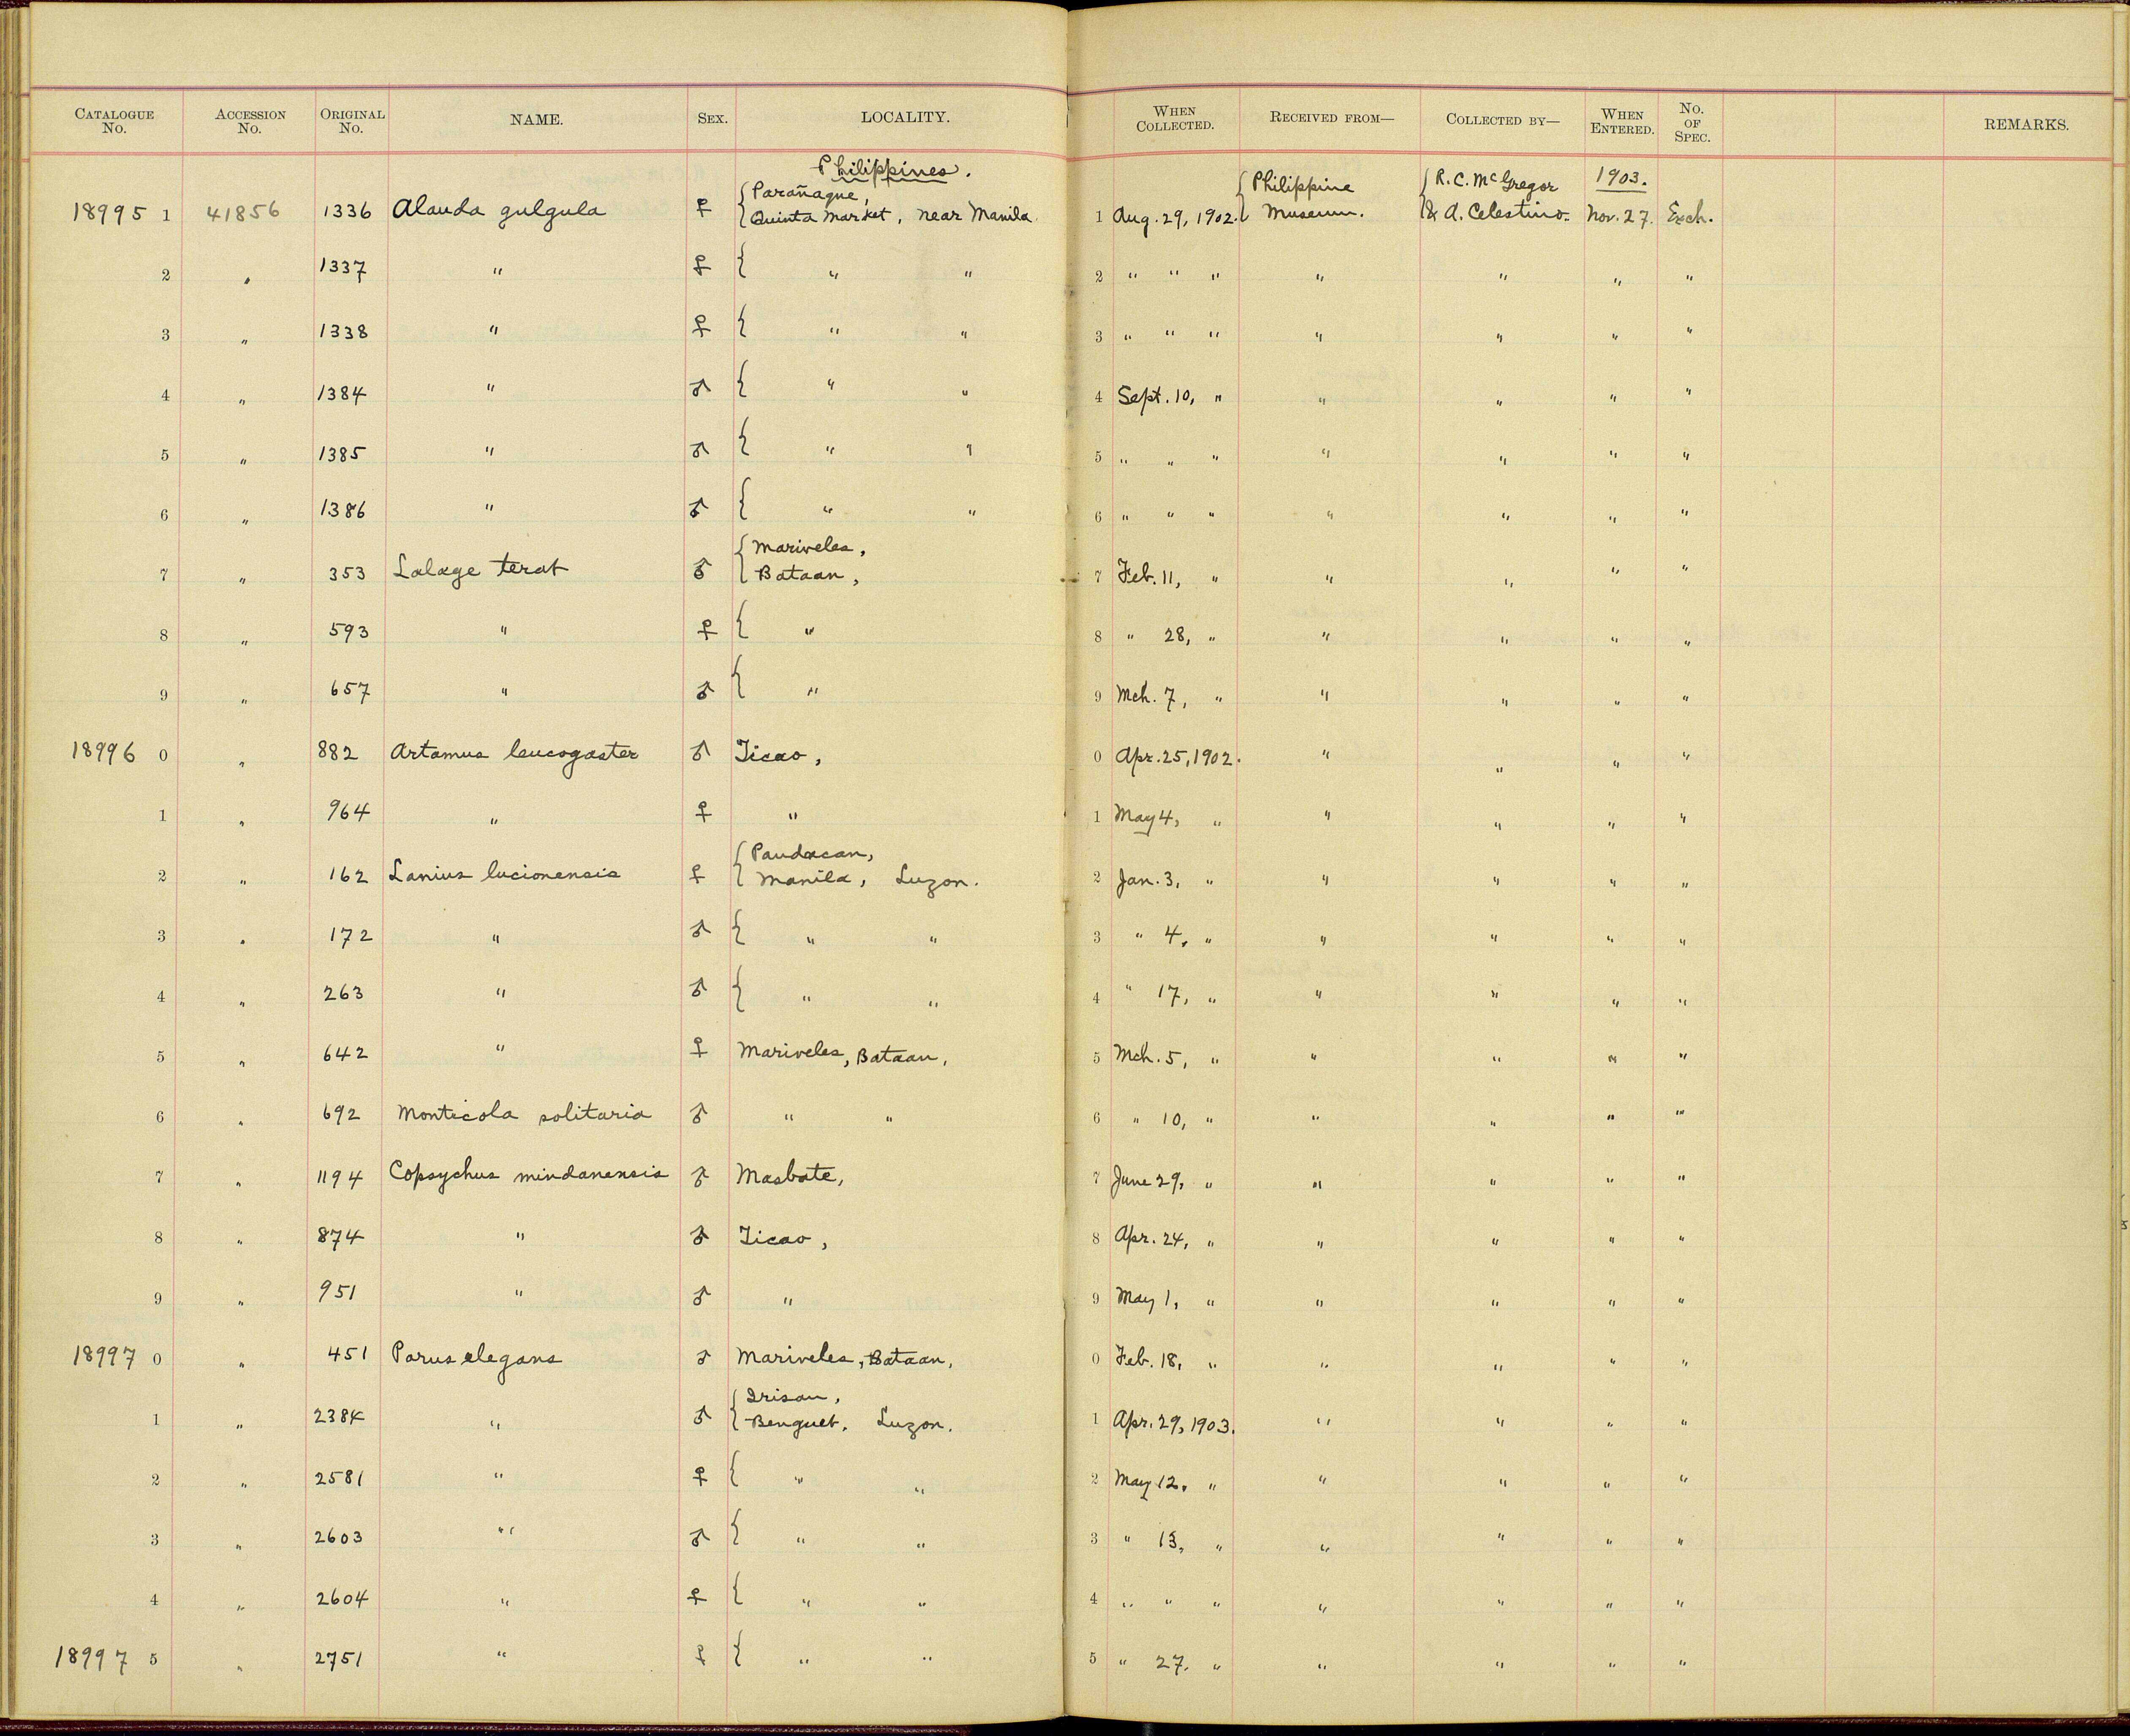 CATALOGUE No. ACCESSION No. ORIGINAL No. NAME. SEX. LOCALITY. WHEN COLLECTED. RECEIVED FROM— COLLECTED BY— WHEN ENTERED. No. OF SPEC. REMARKS.
Philippines.
{Parañaque, {Philippine {R. C. McGregor 1903.
18995 1 41856 1336 Alauda gulgula ♀ Quinta Market, near Manila. 1 Aug. 29, 1902. Museum. & A. Celestino. Nov. 27. Exch.
2 " 1337 " ♀ { " " 2 " " " " " " "
3 " 1338 " ♀ { " " 3 " " " " " " "
4 " 1384 " ♂ { " " 4 Sept. 10, " " " " "
5 " 1385 " ♂ { " " 5 " " " " " " "
6 " 1386 " ♂ { " " 6 " " " " " " "
{Mariveles,
7 " 353 Lalage terat ♂ Bataan, 7 Feb. 11, " " " " "
8 " 593 " ♀ { " 8 " 28, " " " " "
9 " 657 " ♂ { " 9 Mch. 7, " " " " "
18996 0 " 882 Artamus leucogaster ♂ Ticao, 0 Apr. 25, 1902. " " " "
1 " 964 " ♀ " 1 May 4, " " " " "
{Pandacan,
2 " 162 Lanius lucionensis ♀ Manila, Luzon. 2 Jan. 3, " " " " "
3 " 172 " ♂ { " " 3 " 4, " " " " "
4 " 263 " ♂ { " " 4 " 17, " " " " "
5 " 642 " ♀ Mariveles, Bataan, 5 Mch. 5, " " " " "
6 " 692 Monticola solitaria ♂ " " 6 " 10, " " " " "
7 " 1194 Copsychus mindanensis ♂ Masbate, 7 June 29, " " " " "
8 " 874 " ♂ Ticao, 8 Apr. 24, " " " " "
9 " 951 " ♂ " 9 May 1, " " " " "
18997 0 " 451 Parus elegans ♂ Mariveles, Bataan, 0 Feb. 18, " " " " "
{Irisan,
1 " 2384 " ♂ Benguet, Luzon. 1 Apr. 29, 1903. " " " "
2 " 2581 " ♀ { " " 2 May 12, " " " " "
3 " 2603 " ♂ { " " 3 " 13, " " " " "
4 " 2604 " ♀ { " " 4 " " " " " " "
18997 5 " 2751 " ♀ { " " 5 " 27. " " " " "